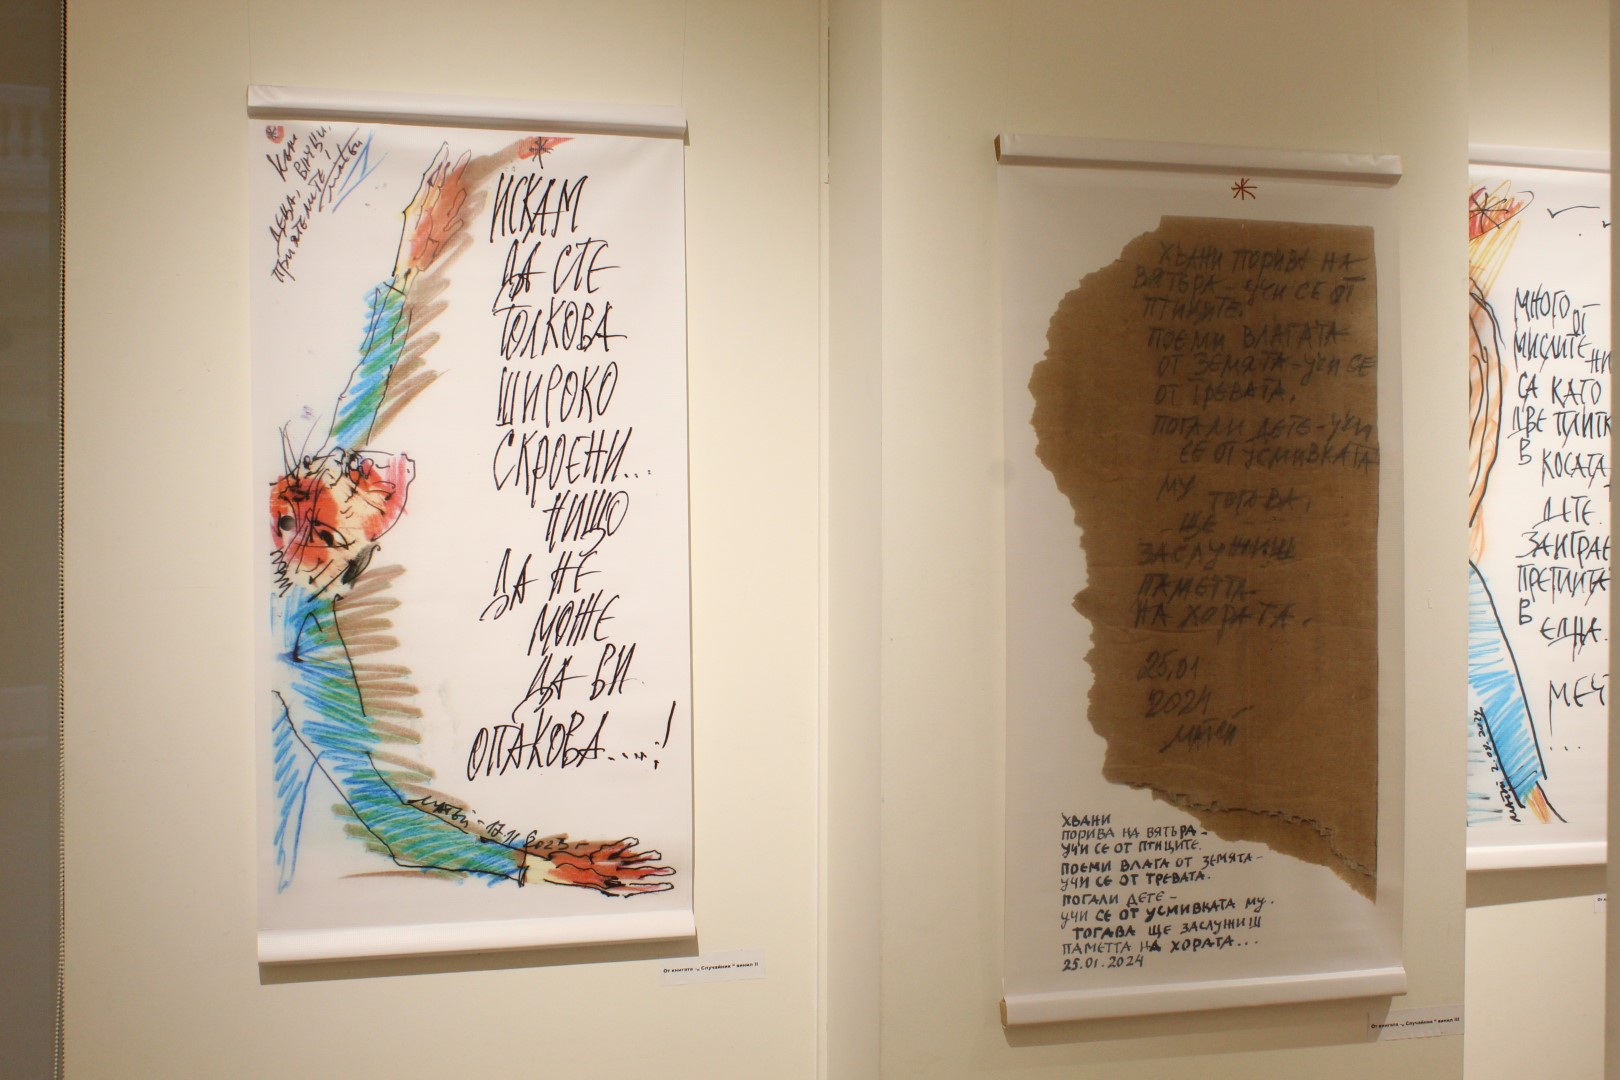 *
Към
деца, внуци,
приятели!
Матей
*
ИСКАМ
ДА СТЕ
ТОЛКОВА
ШИРОКО
СКРОЕНИ...
НИЩО
ДА НЕ
МОЖЕ
ДА ВИ
ОПАКОВА....!
Матей - 17.11.2023 г.
От книгата -„ Случайник " винил II
*
ХВАНИ ПОРИВА НА
ВЯТЪРА - УЧИ СЕ ОТ
ПТИЦИТЕ.
ПОЕМИ ВЛАГАТА
ОТ ЗЕМЯТА - УЧИ СЕ
ОТ ТРЕВАТА.
ПОГАЛИ ДЕТЕ - УЧИ
СЕ ОТ УСМИВКАТА
МУ ТОГАВА,
ЩЕ
ЗАСЛУЖИШ
ПАМЕТТА
НА ХОРАТА.
25.01
2024
Матей
ХВАНИ
ПОРИВА НА ВЯТЪРА -
УЧИ СЕ ОТ ПТИЦИТЕ.
ПОЕМИ ВЛАГА ОТ ЗЕМЯТА -
УЧИ СЕ ОТ ТРЕВАТА.
ПОГАЛИ ДЕТЕ -
УЧИ СЕ ОТ УСМИВКАТА МУ.
ТОГАВА ЩЕ ЗАСЛУЖИШ
ПАМЕТТА НА ХОРАТА...
25.01.2024
От книгата -„ Случайник " винил III
МНОГО ОТ
МИСЛИТЕ НИ
СА КАТО
ДВЕ ПЛИТК
В КОСАТА
ДЕТЕ.
ЗАИГРАЕ
ПРЕПЛИТА
В
ЕДНА.
МЕЧ
...
Матей 2.04.2024